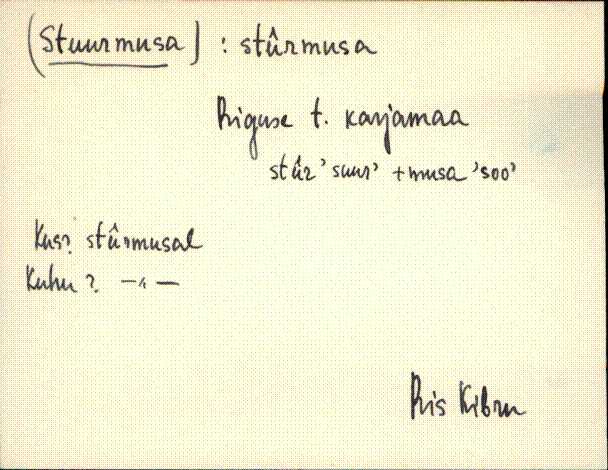 (Stuurmusa) : stûrmusa
Riguse t. karjamaa
stûr 'suur' + musa 'soo'
Kus? stûrmusal
Kuhu? —„—
Riis Kibru